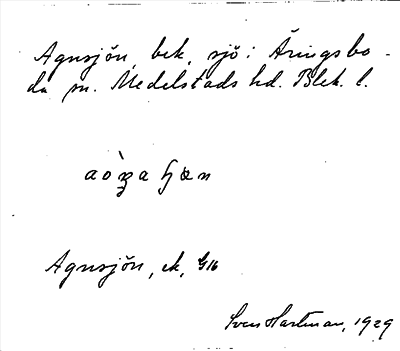 Agnsjön, bek, sjö i Äringsbo-
da sn. Medelstads hd. Blek. l.
Agnsjön, ek, G16
Sven Hartman, 1929